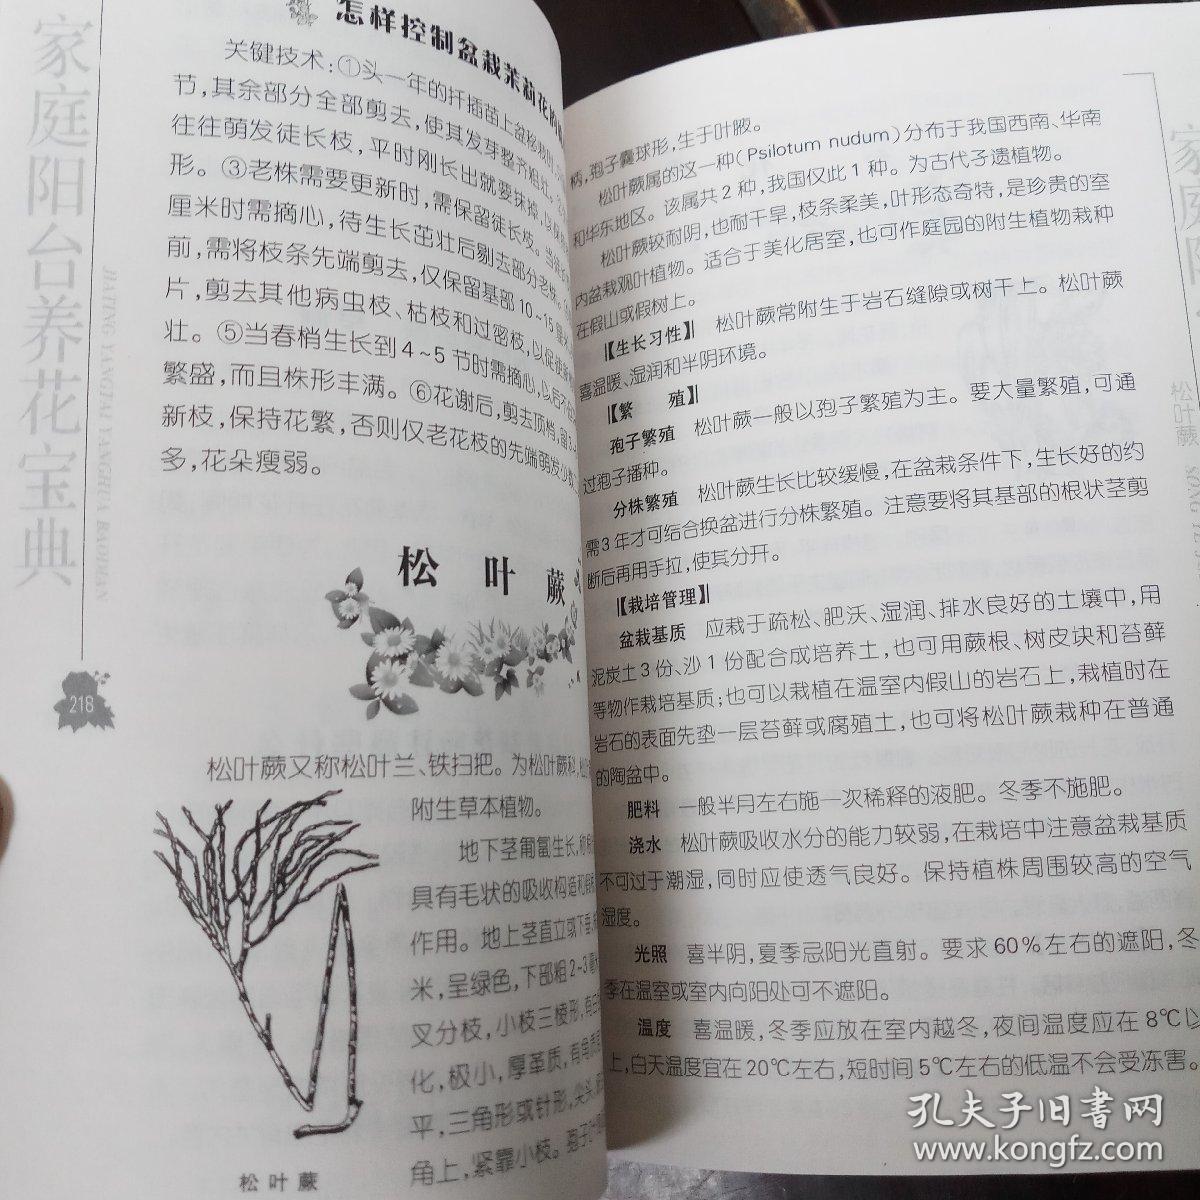 家庭阳台养花宝典
JIATING YANGTAI YANGHUA BAODIAN
218
怎样控制盆栽茉莉花的
关键技术：①头一年的扦插苗上盆移栽时，
节，其余部分全部剪去，使其发芽整齐粗壮。
往往萌发徒长枝，平时刚长出就要抹掉，以保
形。③老株需要更新时，需保留徒长枝。当徒长
厘米时需摘心，待生长茁壮后剔去部分老株。
前，需将枝条先端剪去，仅保留基部10~15厘
片，剪去其他病虫枝、枯枝和过密枝，以促使新
壮。⑤当春梢生长到4~5节时需摘心，以后不
繁盛，而且株形丰满。⑥花谢后，剪去顶梢，
新枝，保持花繁，否则仅老花枝的先端萌发少
多，花朵瘦弱。
松叶蕨
松叶蕨又称松叶兰、铁扫把。为松叶蕨科，
附生草本植物。
地下茎匍匐生长，
具有毛状的吸收构造和
作用。地上茎直立或下垂，
米，呈绿色，下部粗2~3毫
叉分枝，小枝三棱形，有
化，极小，厚革质，有角质
平，三角形或针形，尖头，
角上，紧靠小枝。孢子叶
松叶蕨
柄，孢子囊球形，生于叶腋。
松叶蕨属的这一种(Psilotum nudum)分布于我国西南、华南
和华东地区。该属共2种，我国仅此1种。为古代孑遗植物。
松叶蕨较耐阴，也耐干旱，枝条柔美，叶形态奇特，是珍贵的室
内盆栽观叶植物。适合于美化居室，也可作庭园的附生植物栽种
在假山或假树上。
【生长习性】 松叶蕨常附生于岩石缝隙或树干上。松叶蕨
喜温暖、湿润和半阴环境。
【繁 殖】
孢子繁殖 松叶蕨一般以孢子繁殖为主。要大量繁殖，可通
过孢子播种。
分株繁殖 松叶蕨生长比较缓慢，在盆栽条件下，生长好的约
需3年才可结合换盆进行分株繁殖。注意要将其基部的根状茎剪
断后再用手拉，使其分开。
【栽培管理】
盆栽基质 应栽于疏松、肥沃、湿润、排水良好的土壤中，用
泥炭土3份、沙1份配合成培养土，也可用蕨根、树皮块和苔藓
等物作栽培基质；也可以栽植在温室内假山的岩石上，栽植时在
岩石的表面先垫一层苔藓或腐殖土，也可将松叶蕨栽种在普通
的陶盆中。
肥料 一般半月左右施一次稀释的液肥。冬季不施肥。
浇水 松叶蕨吸收水分的能力较弱，在栽培中注意盆栽基质
不可过于潮湿，同时应使透气良好。保持植株周围较高的空气
湿度。
光照 喜半阴，夏季忌阳光直射。要求60%左右的遮阳，冬
季在温室或室内向阳处可不遮阳。
温度 喜温暖，冬季应放在室内越冬，夜间温度应在8℃以
上，白天温度宜在20℃左右，短时间5℃左右的低温不会受冻害。
家庭阳
松叶蕨
孔夫子旧书网
www.kongfz.com